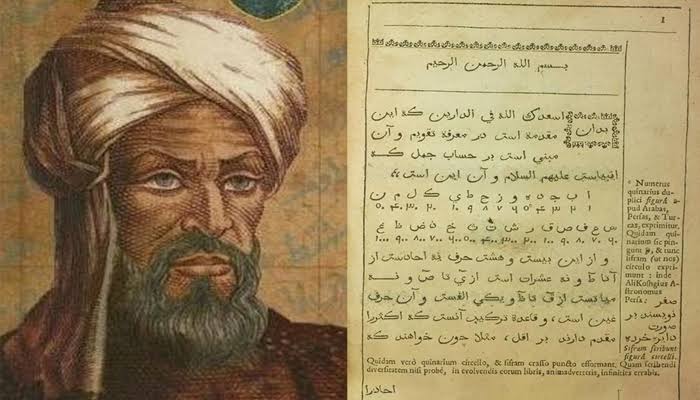 1
بسم الله الرحمن الرحيم
بدان اسعدك الله في الدارين كه اين
مقدمه است در معرفة تقويم و آن
مبني است بر حساب جمل كه
عليهم السلام و آن اين است
ا ب ج د ه و ز ح ط ي ك ل م ن
س ع ف ص ق ر ش ت ث خ ذ ض ظ غ
و از اين بيست و هشت حرف نه احادست از
آ تا ط و نه عشرات است از ي تا ص و نه
مياتست از ق تا ظ و يكي الفست و آن حرف
غين است، و قاعدة تركيب آنست كه اكثر را
مقدم دارند بر اقل، مثلا چون خواهند كه
* Numerus
quinarius du-
plici figurâ a-
pud Arabas,
Persas, & Tur-
cas, exprimitur.
Quidam qui-
narium sic pin-
gunt & tunc
sifram (ut nos)
circulo expri-
munt: inde
Ali Koshgius A-
stronomus
Persa:
صفر
نويسند بر
صورت
دايره خرده
Sifram scribunt
figurâ circelli.
Quidam verò quinarium circello, & sifram crasso puncto efformant. Quam scribendi
diversitatem nisi probè, in evolvendis eorum libris, animadverteris, infinities errabis.
احاد را